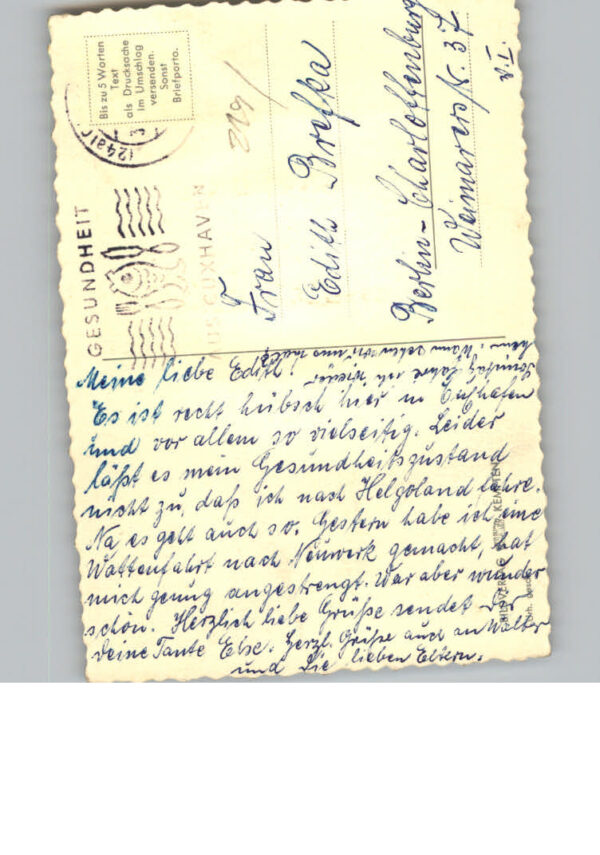 Bis zu 5 Worten
Text
als Drucksache
im Umschlag
versenden.
Sonst
Briefporto.
(24a)
3
GESUNDHEIT
AUS CUXHAVEN
219/
Frau
Edith Brefka
Berlin-Charlottenburg
Weimarerstr. 37
v. I.
Meine liebe Edith!
Es ist recht hübsch hier in Cuxhafen
und vor allem so vielseitig. Leider
läßt es mein Gesundheitszustand
nicht zu, daß ich nach Helgoland fahre.
Na es geht auch so. Gestern habe ich eine
Wattenfahrt nach Neuwerk gemacht, hat
mich genug angestrengt. War aber wunder
schön. Herzlich liebe Grüße sendet Dir
Deine Tante Else. Herzl. Grüße auch an Walter
und Die lieben Eltern.
Sonntag fahre ich wieder
heim. Wann sehen wir uns mal?
KEMPTEN